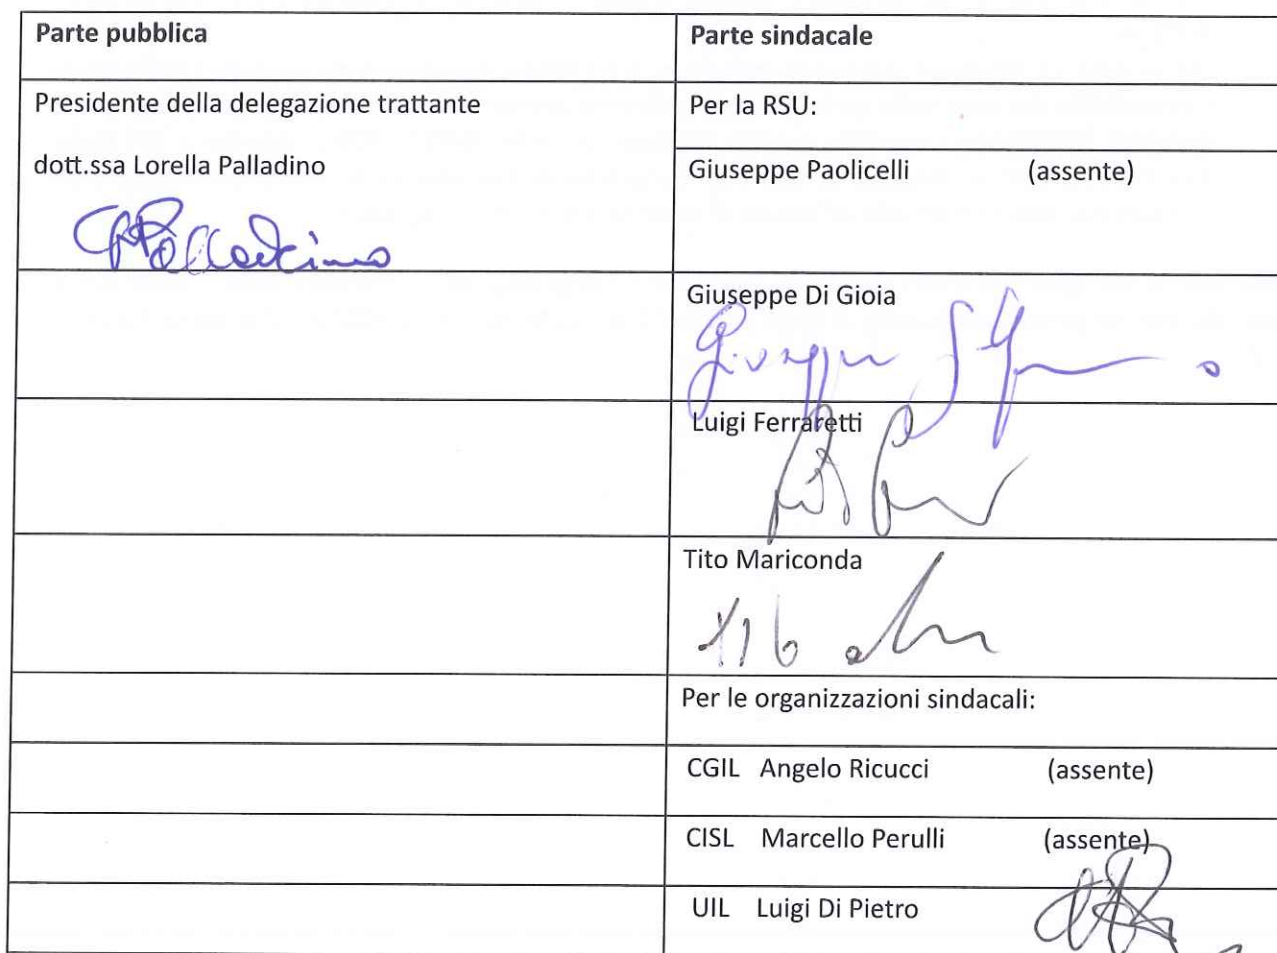 Parte pubblica
Parte sindacale
Presidente della delegazione trattante
dott.ssa Lorella Palladino
Per la RSU:
Giuseppe Paolicelli (assente)
Palladino
Giuseppe Di Gioia
Giuseppe
Luigi Ferraretti
Tito Mariconda
Per le organizzazioni sindacali:
CGIL Angelo Ricucci (assente)
CISL Marcello Perulli (assente)
UIL Luigi Di Pietro